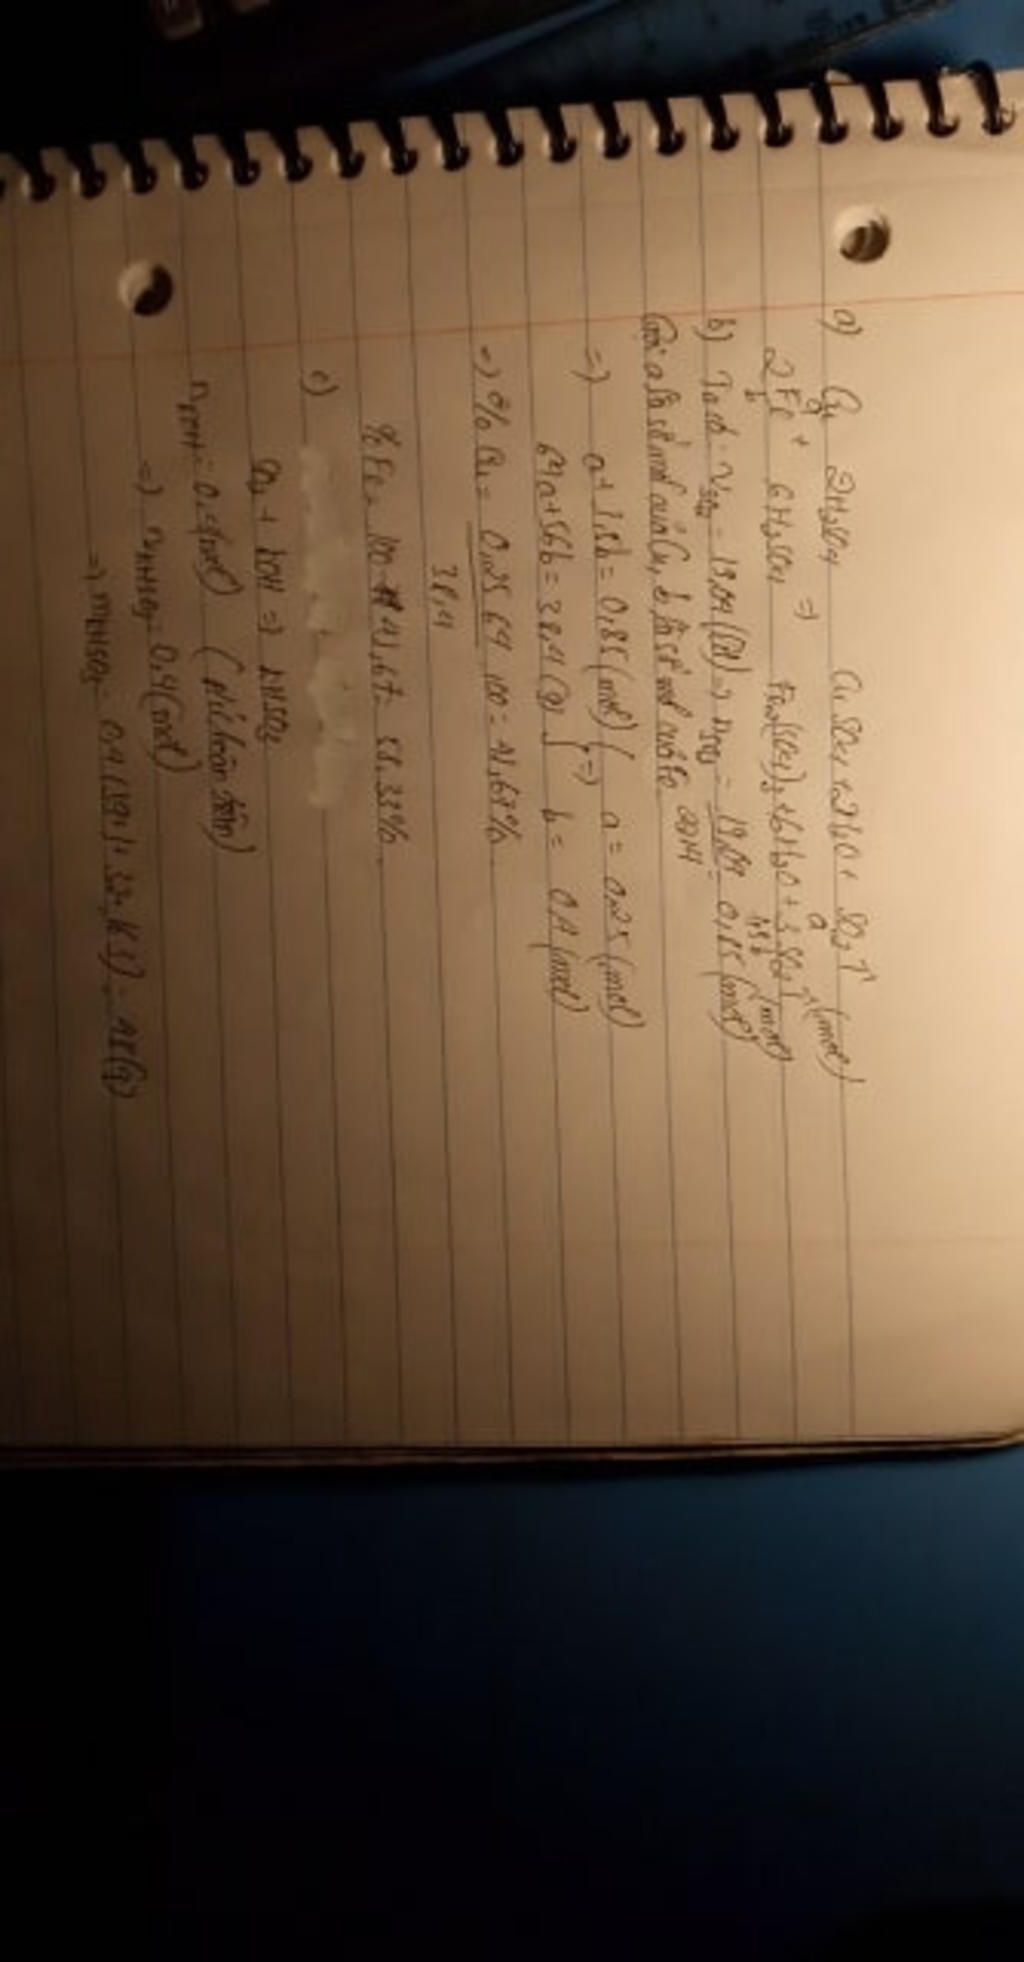 a) Cu 2H2SO4 CuSO4 + 2H2O + SO2↑
a a (mol)
2Fe + 6H2SO4 => Fe2(SO4)3 + 6H2O + 3SO2↑
b 1,5b (mol)
b) Ta có: VSO2 = 19,04 (lít) => nSO2 = 19,04 = 0,85 (mol)
22,4
Gọi a là số mol của Cu, b là số mol của Fe
=> a + 1,5b = 0,85 (mol) a = 0,25 (mol)
64a + 56b = 38,4 (g) } => b = 0,4 (mol)
=> % Cu = 0,25 64 . 100 = 41,67%
38,4
% Fe = 100 - 41,67 = 58,33%
c)
SO2 + KOH => KHSO3
nKOH = 0,4 (mol)
=> nKHSO3 = 0,4 (mol)
=> mKHSO3 = 0,4 (39+1+32+16.3) = 48 (g)